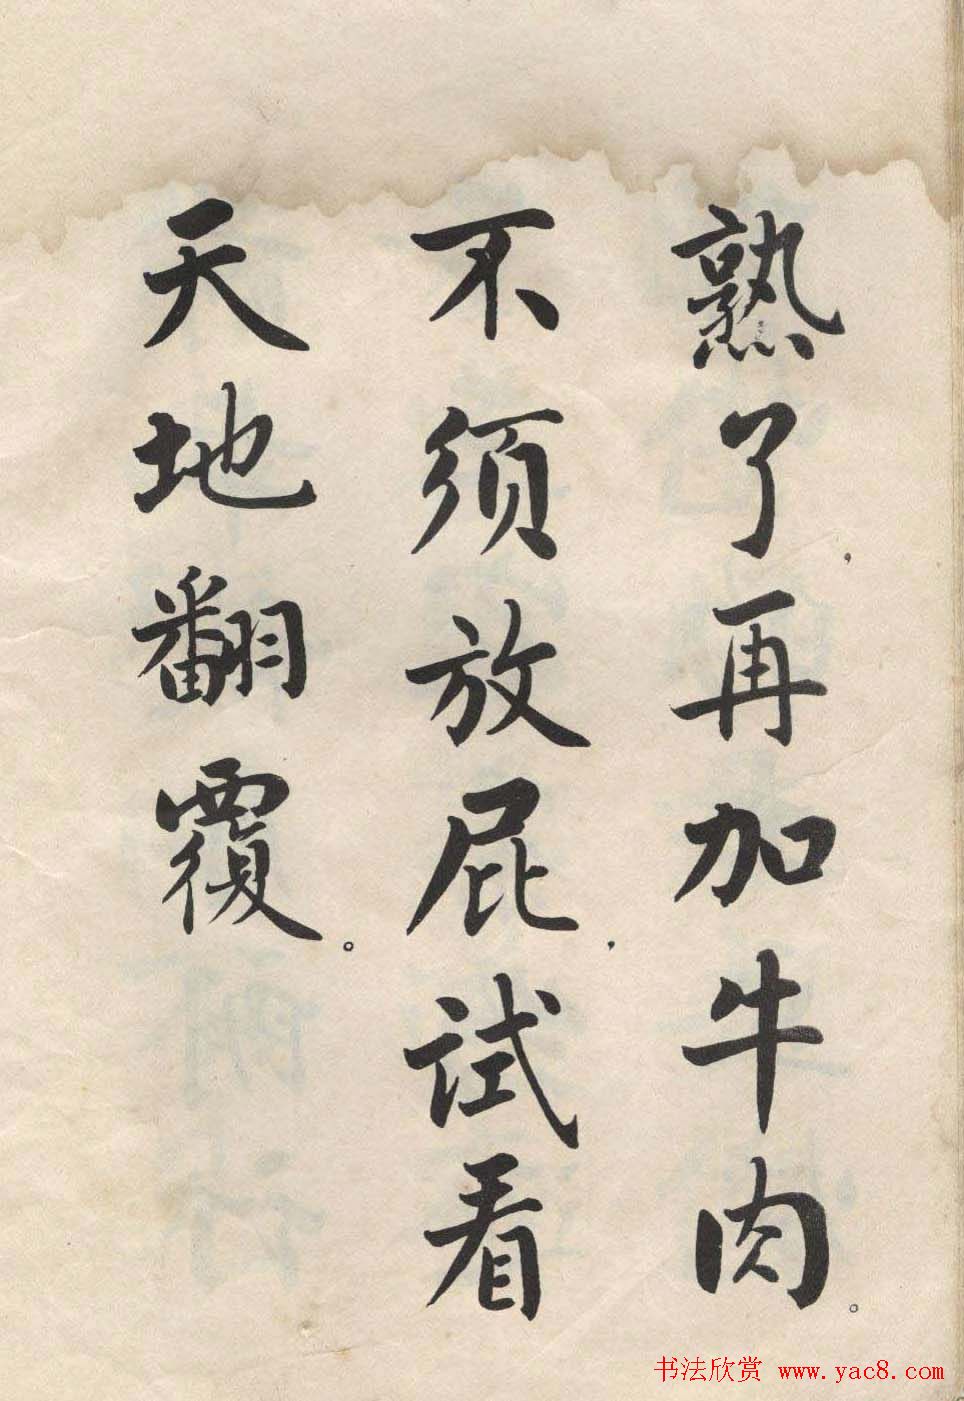 熟了，再加牛肉。
不须放屁，试看
天地翻覆。
书法欣赏 www.yac8.com